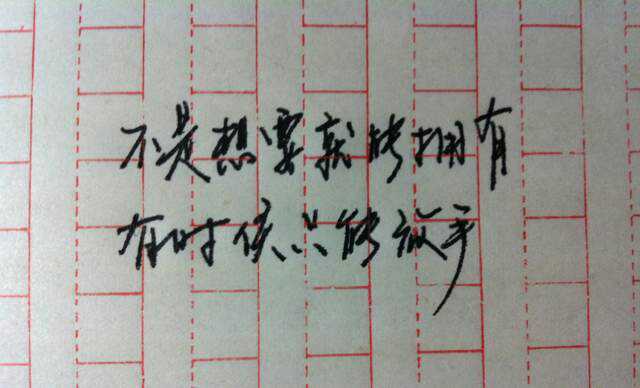 不是想要就能拥有
有时候只能放手